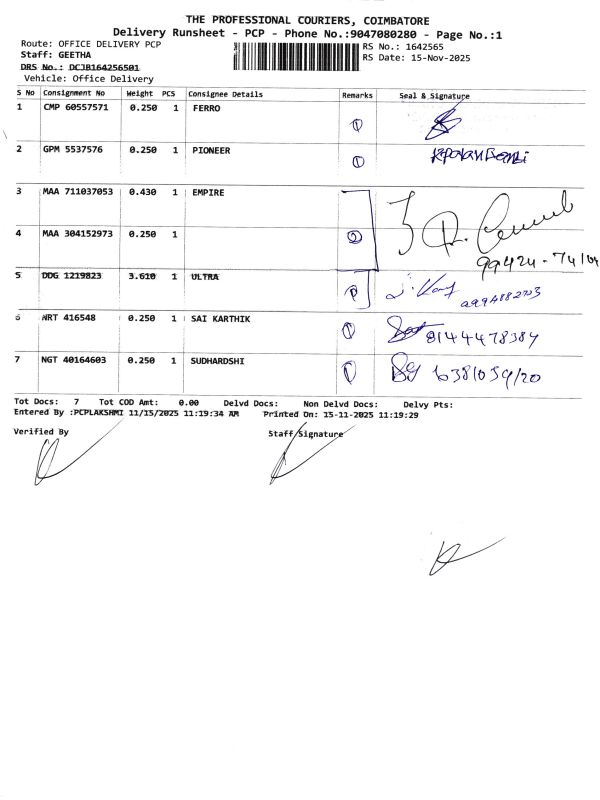 THE PROFESSIONAL COURIERS, COIMBATORE
Delivery Runsheet - PCP - Phone No.:9047080280 - Page No.:1
Route: OFFICE DELIVERY PCP RS No.: 1642565
Staff: GEETHA RS Date: 15-Nov-2025
DRS No.: DCJB164256501
Vehicle: Office Delivery
S No Consignment No Weight PCS Consignee Details Remarks Seal & Signature
1 CMP 60557571 0.250 1 FERRO 1
2 GPM 5537576 0.250 1 PIONEER 1
3 MAA 711037053 0.430 1 EMPIRE
4 MAA 304152973 0.250 1 2
5 DDG 1219823 3.610 1 ULTRA
6 NRT 416548 0.250 1 SAI KARTHIK 1 8144478384
7 NGT 40164603 0.250 1 SUDHARDSHI 1
Tot Docs: 7 Tot COD Amt: 0.00 Delvd Docs: Non Delvd Docs: Delvy Pts:
Entered By :PCPLAKSHMI 11/15/2025 11:19:34 AM Printed On: 15-11-2025 11:19:29
Verified By Staff Signature